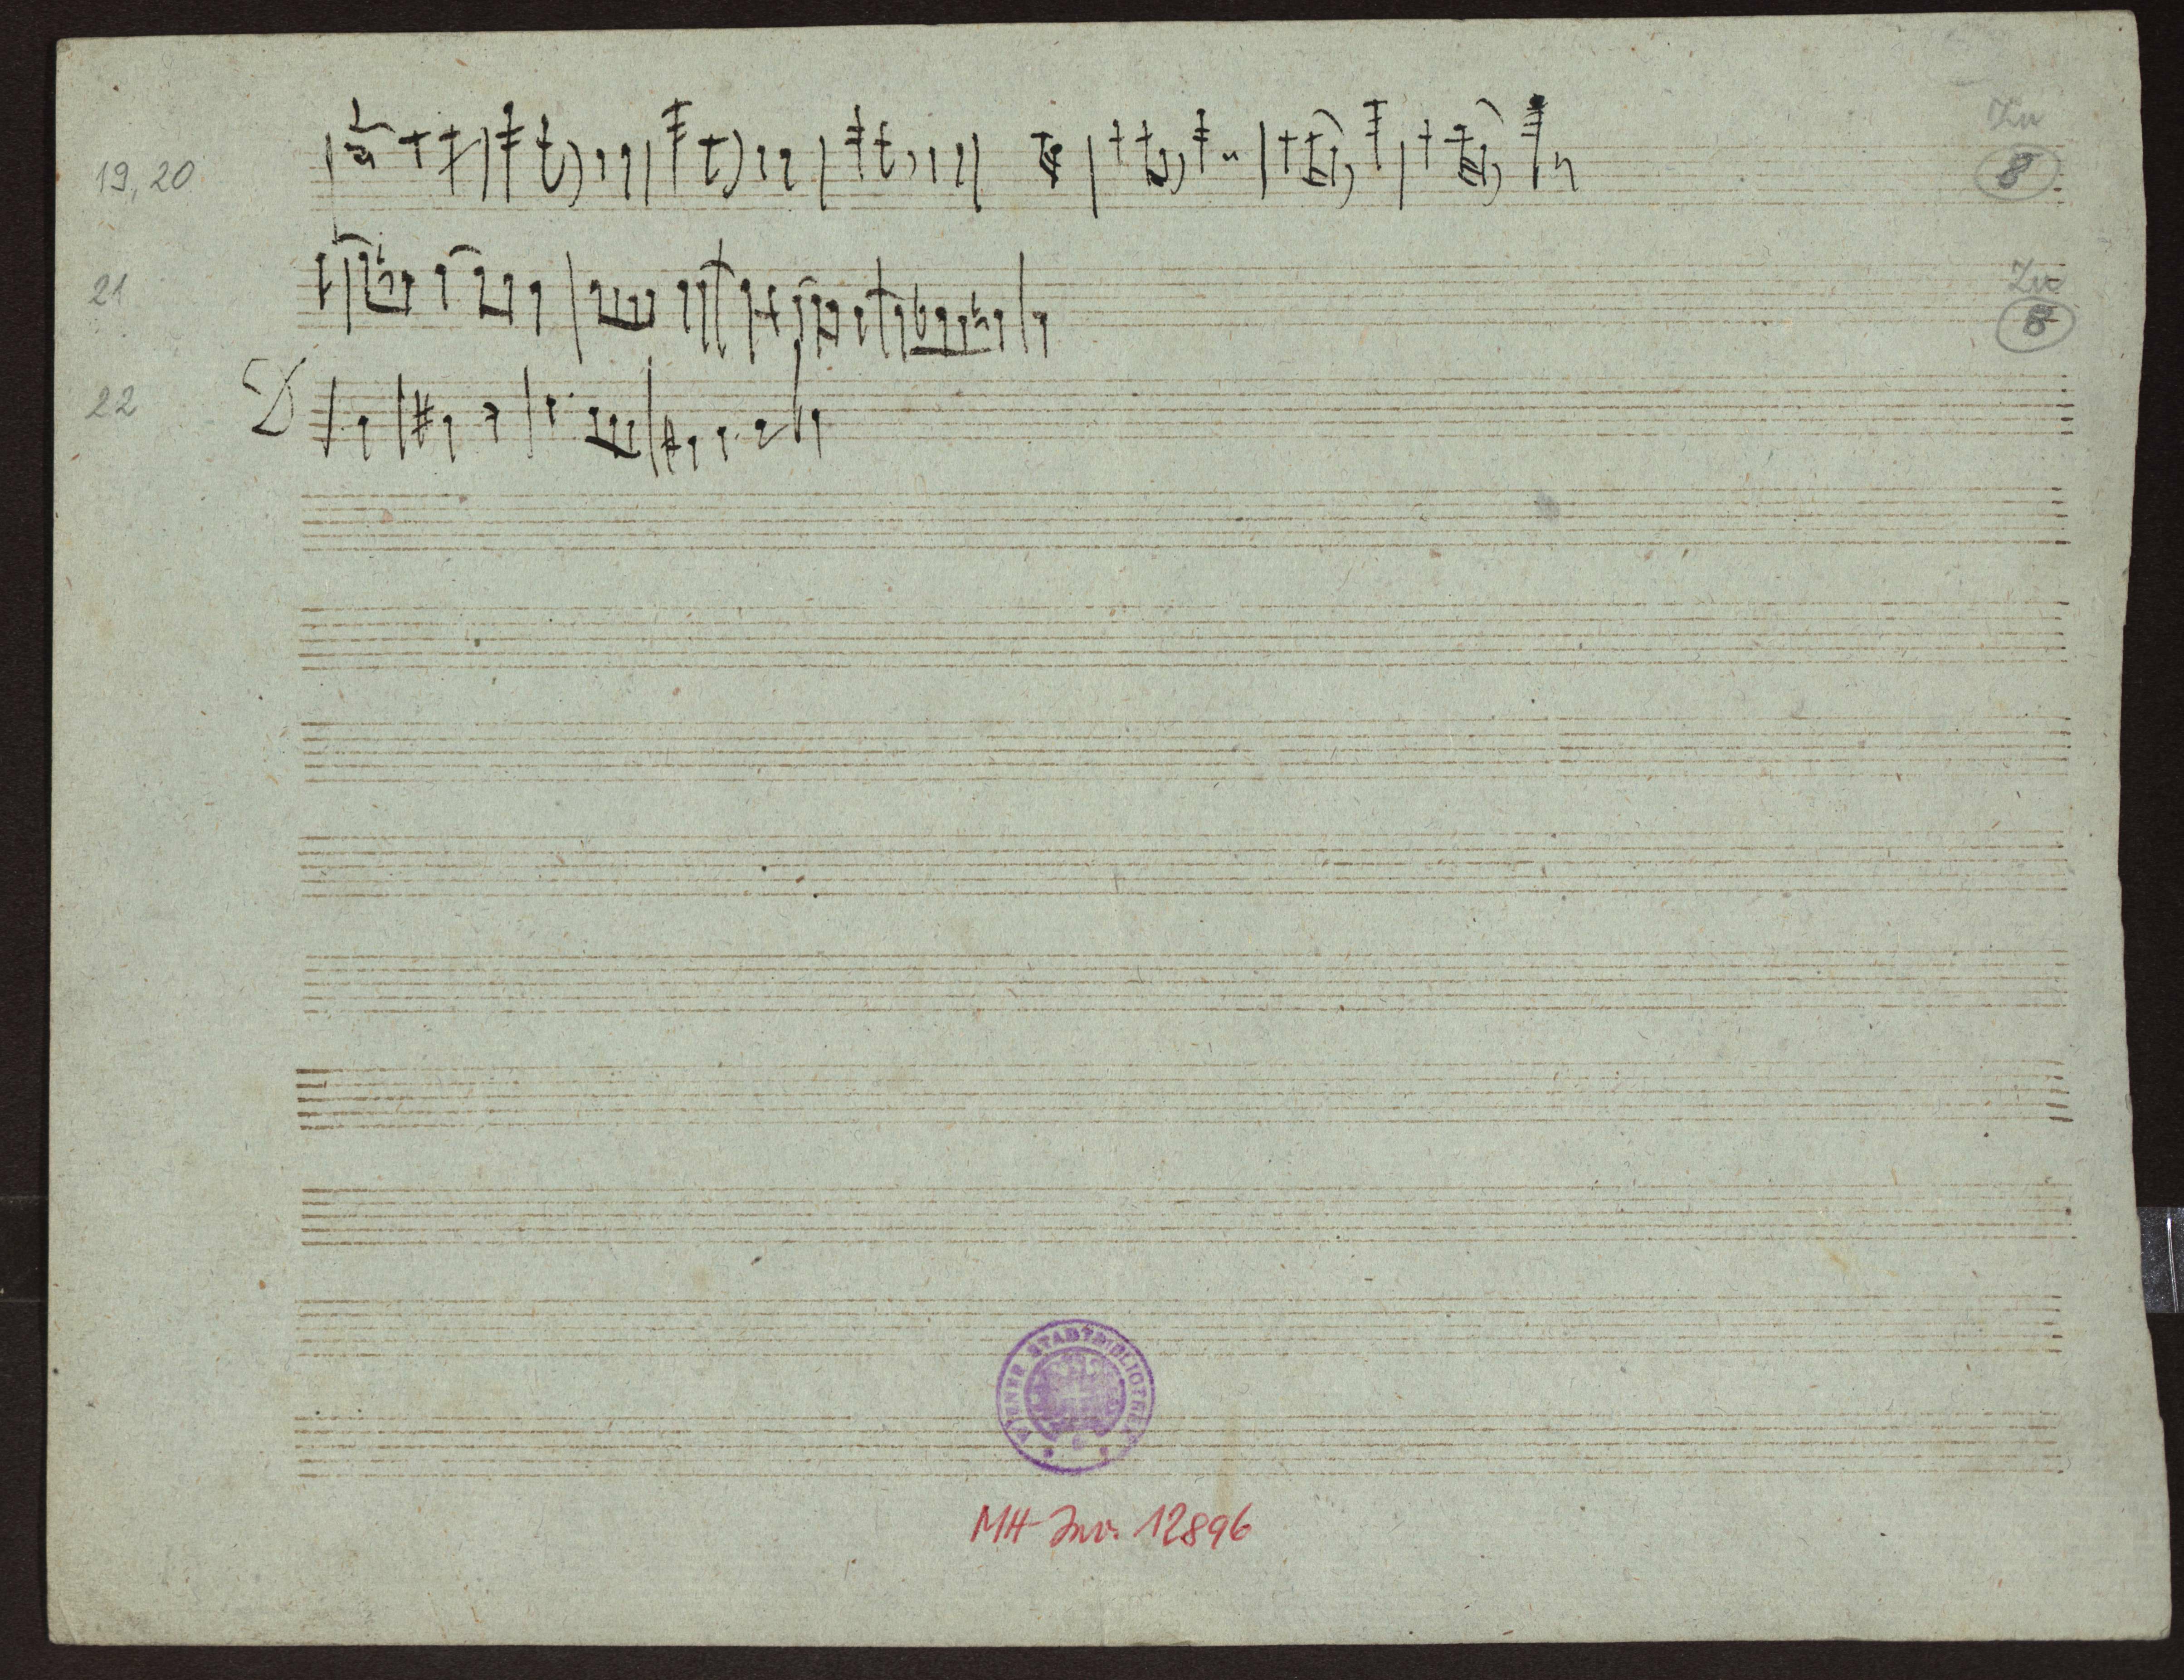 19, 20
Zu
8
21
Zu
8
22
D
WIENER STADTBIBLIOTHEK
MH-Inv. 12896